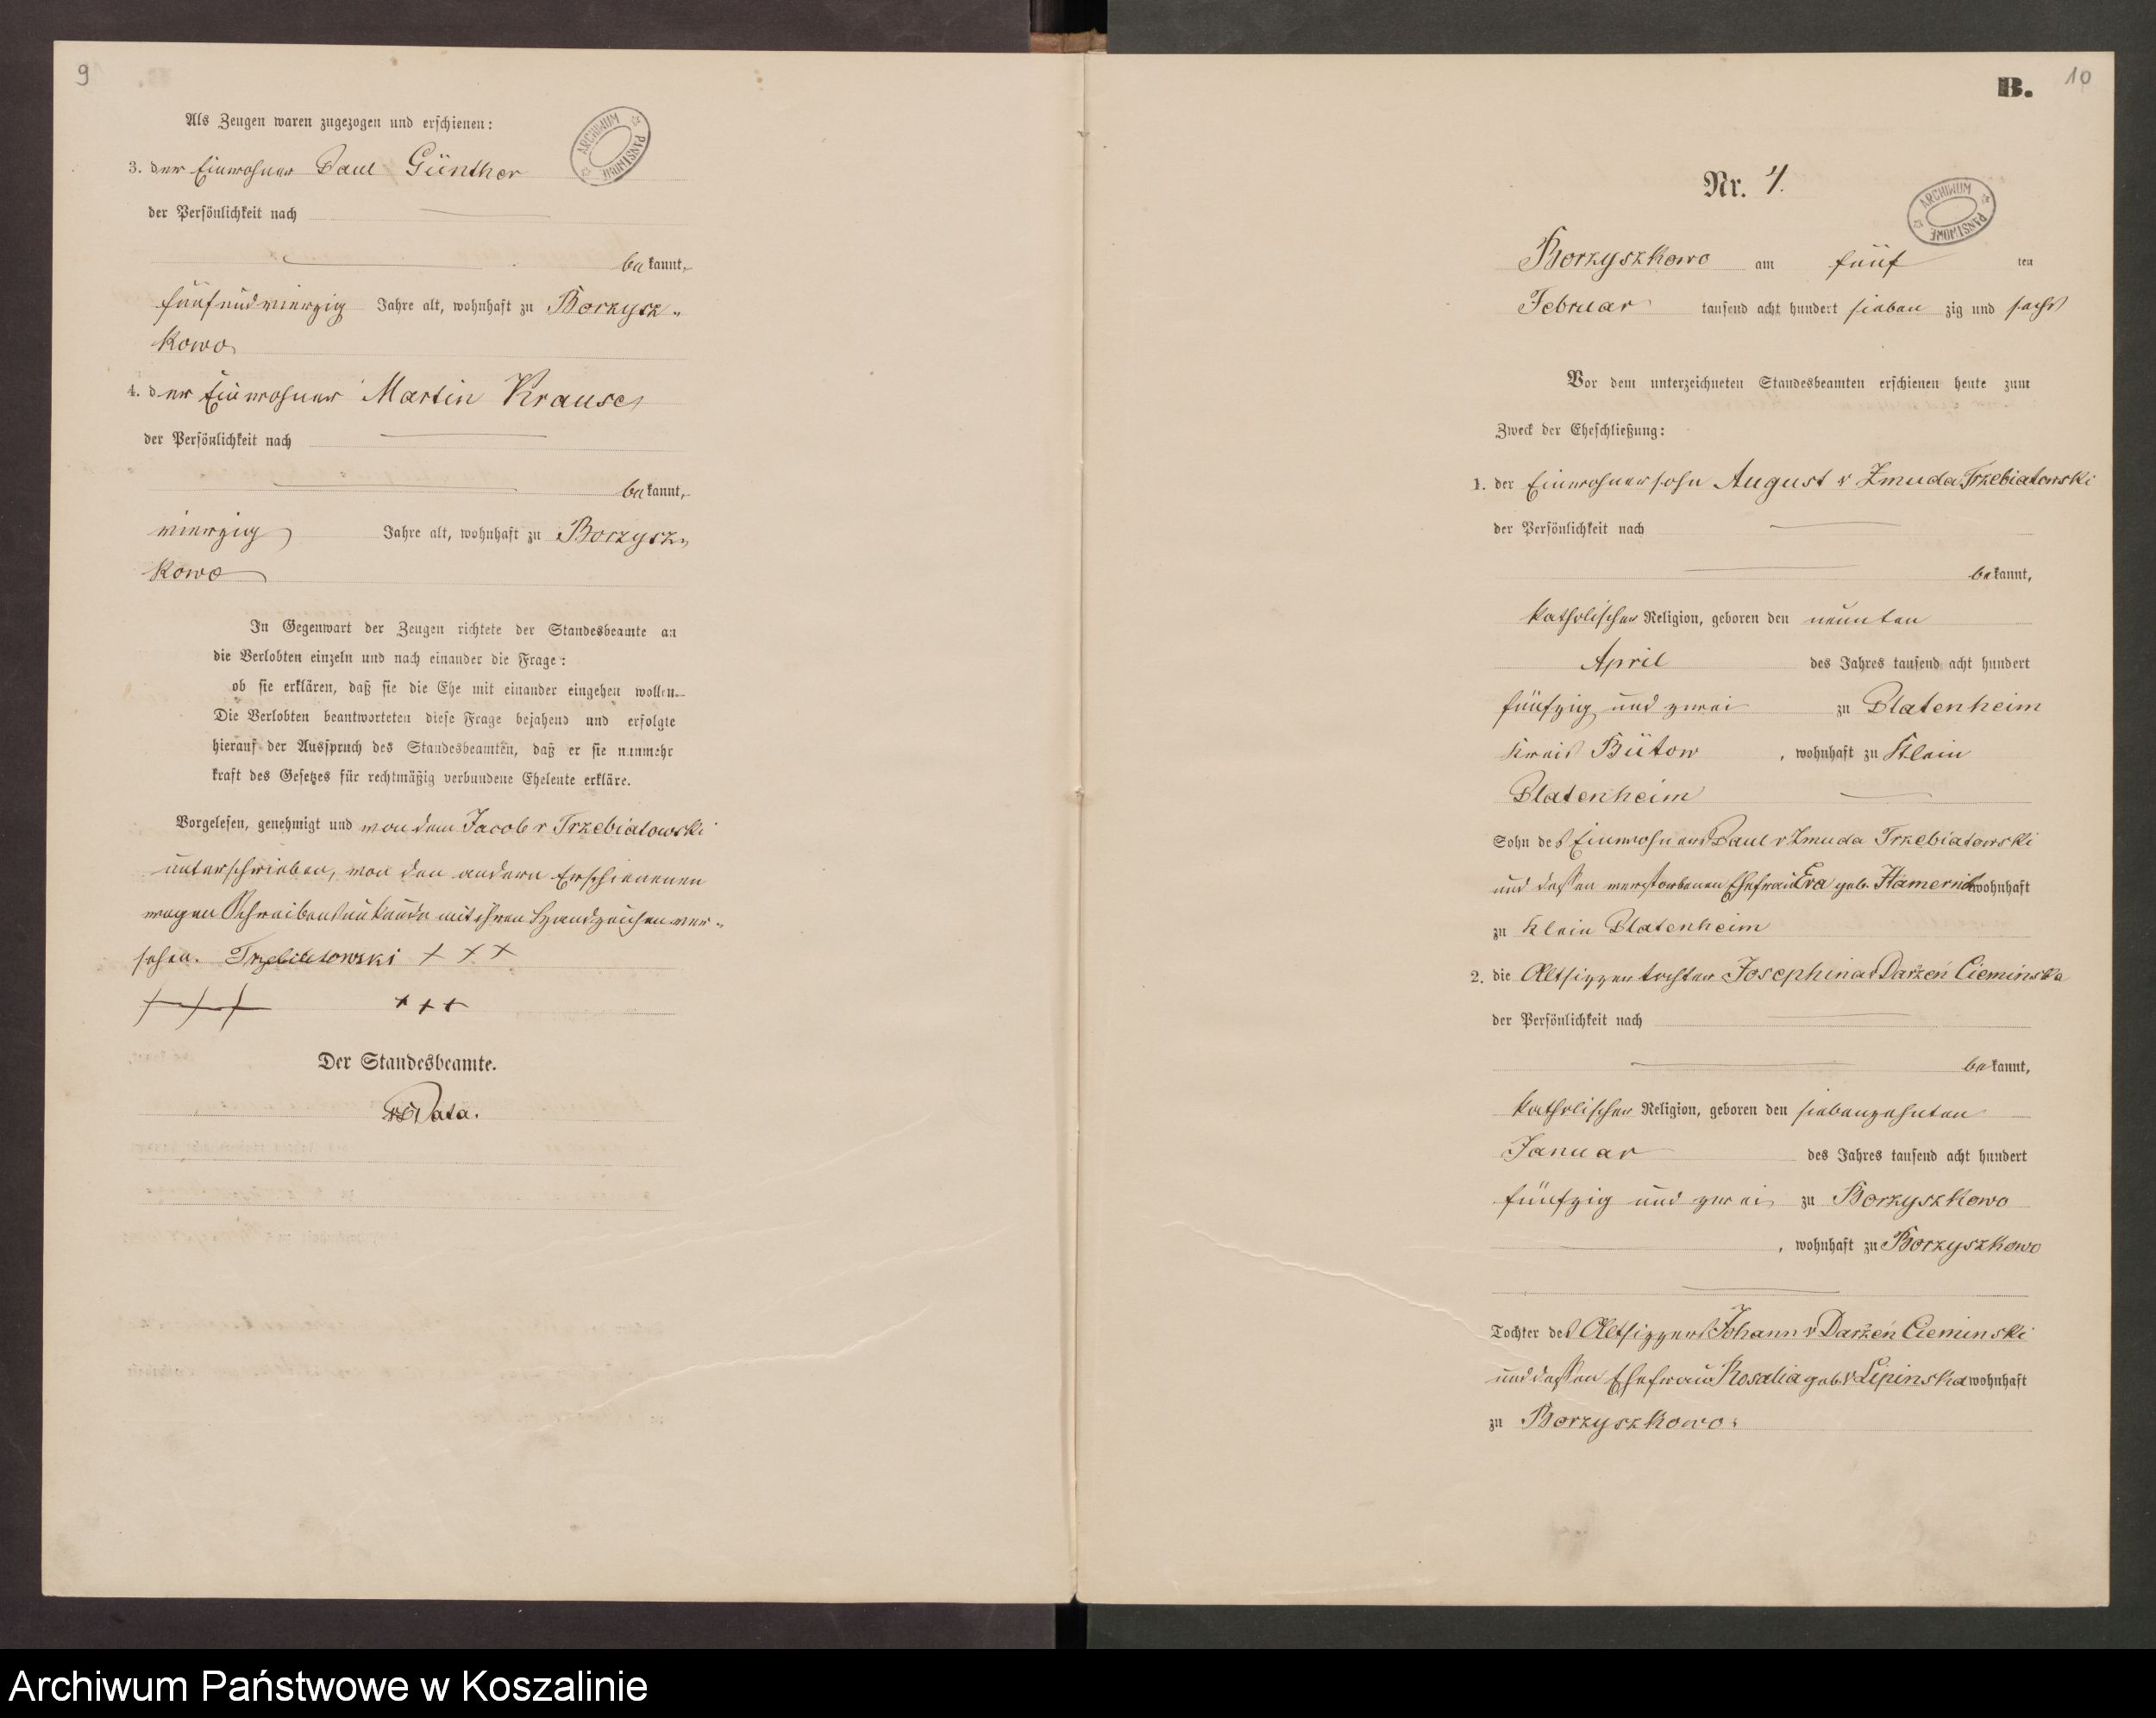 9
Als Zeugen waren zugezogen und erschienen:
ARCHIWUM PAŃSTWOWE
3. der Einwohner Paul Günther
der Persönlichkeit nach
bekannt,
fünfundvierzig Jahre alt, wohnhaft zu Borzysz-
kowo
4. der Einwohner Martin Krause
der Persönlichkeit nach
bekannt,
vierzig Jahre alt, wohnhaft zu Borzysz-
kowo
In Gegenwart der Zeugen richtete der Standesbeamte an
die Verlobten einzeln und nach einander die Frage:
ob sie erklären, daß sie die Ehe mit einander eingehen wollen.
Die Verlobten beantworteten diese Frage bejahend und erfolgte
hierauf der Ausspruch des Standesbeamten, daß er sie nunmehr
kraft des Gesetzes für rechtmäßig verbundene Eheleute erkläre.
Vorgelesen, genehmigt und von dem Jacob v Trzebiatowski
unterschrieben, von den andern Erschienenen
wegen Schreibensunkunde mit ihren Handzeichen ver-
sehen. Trzebiatowski + + +
+ + + + + +
Der Standesbeamte.
Data.
B. 10
Nr. 4.
ARCHIWUM PAŃSTWOWE
Borzyszkowo am fünf ten
Februar tausend acht hundert sieben zig und sechs
Vor dem unterzeichneten Standesbeamten erschienen heute zum
Zweck der Eheschließung:
1. der Einwohnersohn August v Zmuda Trzebiatowski
der Persönlichkeit nach
bekannt,
katholischer Religion, geboren den neunten
April des Jahres tausend acht hundert
fünfzig und zwei zu Platenheim
Kreis Bütow, wohnhaft zu Klein
Platenheim
Sohn des Einwohners Paul v Zmuda Trzebiatowski
und dessen verstorbenen Ehefrau Eva geb. wohnhaft
zu Klein Platenheim
2. die Altsitzertochter Josephina v Darżeń Cieminska
der Persönlichkeit nach
bekannt,
katholischer Religion, geboren den siebenzehnten
Januar des Jahres tausend acht hundert
fünfzig und zwei zu Borzyszkowo
, wohnhaft zu Borzyszkowo
Tochter des Altsitzers Johann v Darżeń Cieminski
und dessen Ehefrau Rosalia geb. v Lipinska wohnhaft
zu Borzyszkowo.
Archiwum Państwowe w Koszalinie